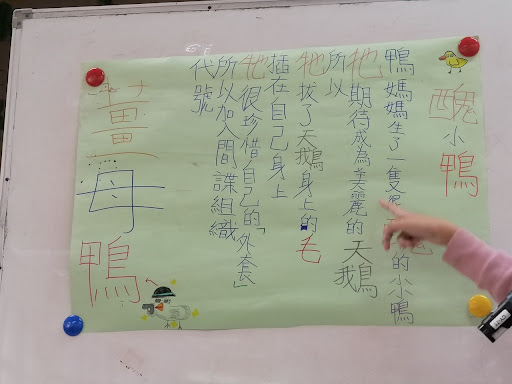 醜小鴨
鴨媽媽生了一隻的小鴨
牠期待成為美麗的天鵝
所以
牠拔了天鵝身上的毛
插在自己身上
牠很珍惜自己的「外套」
所以加入間諜組織
代號
薑母鴨